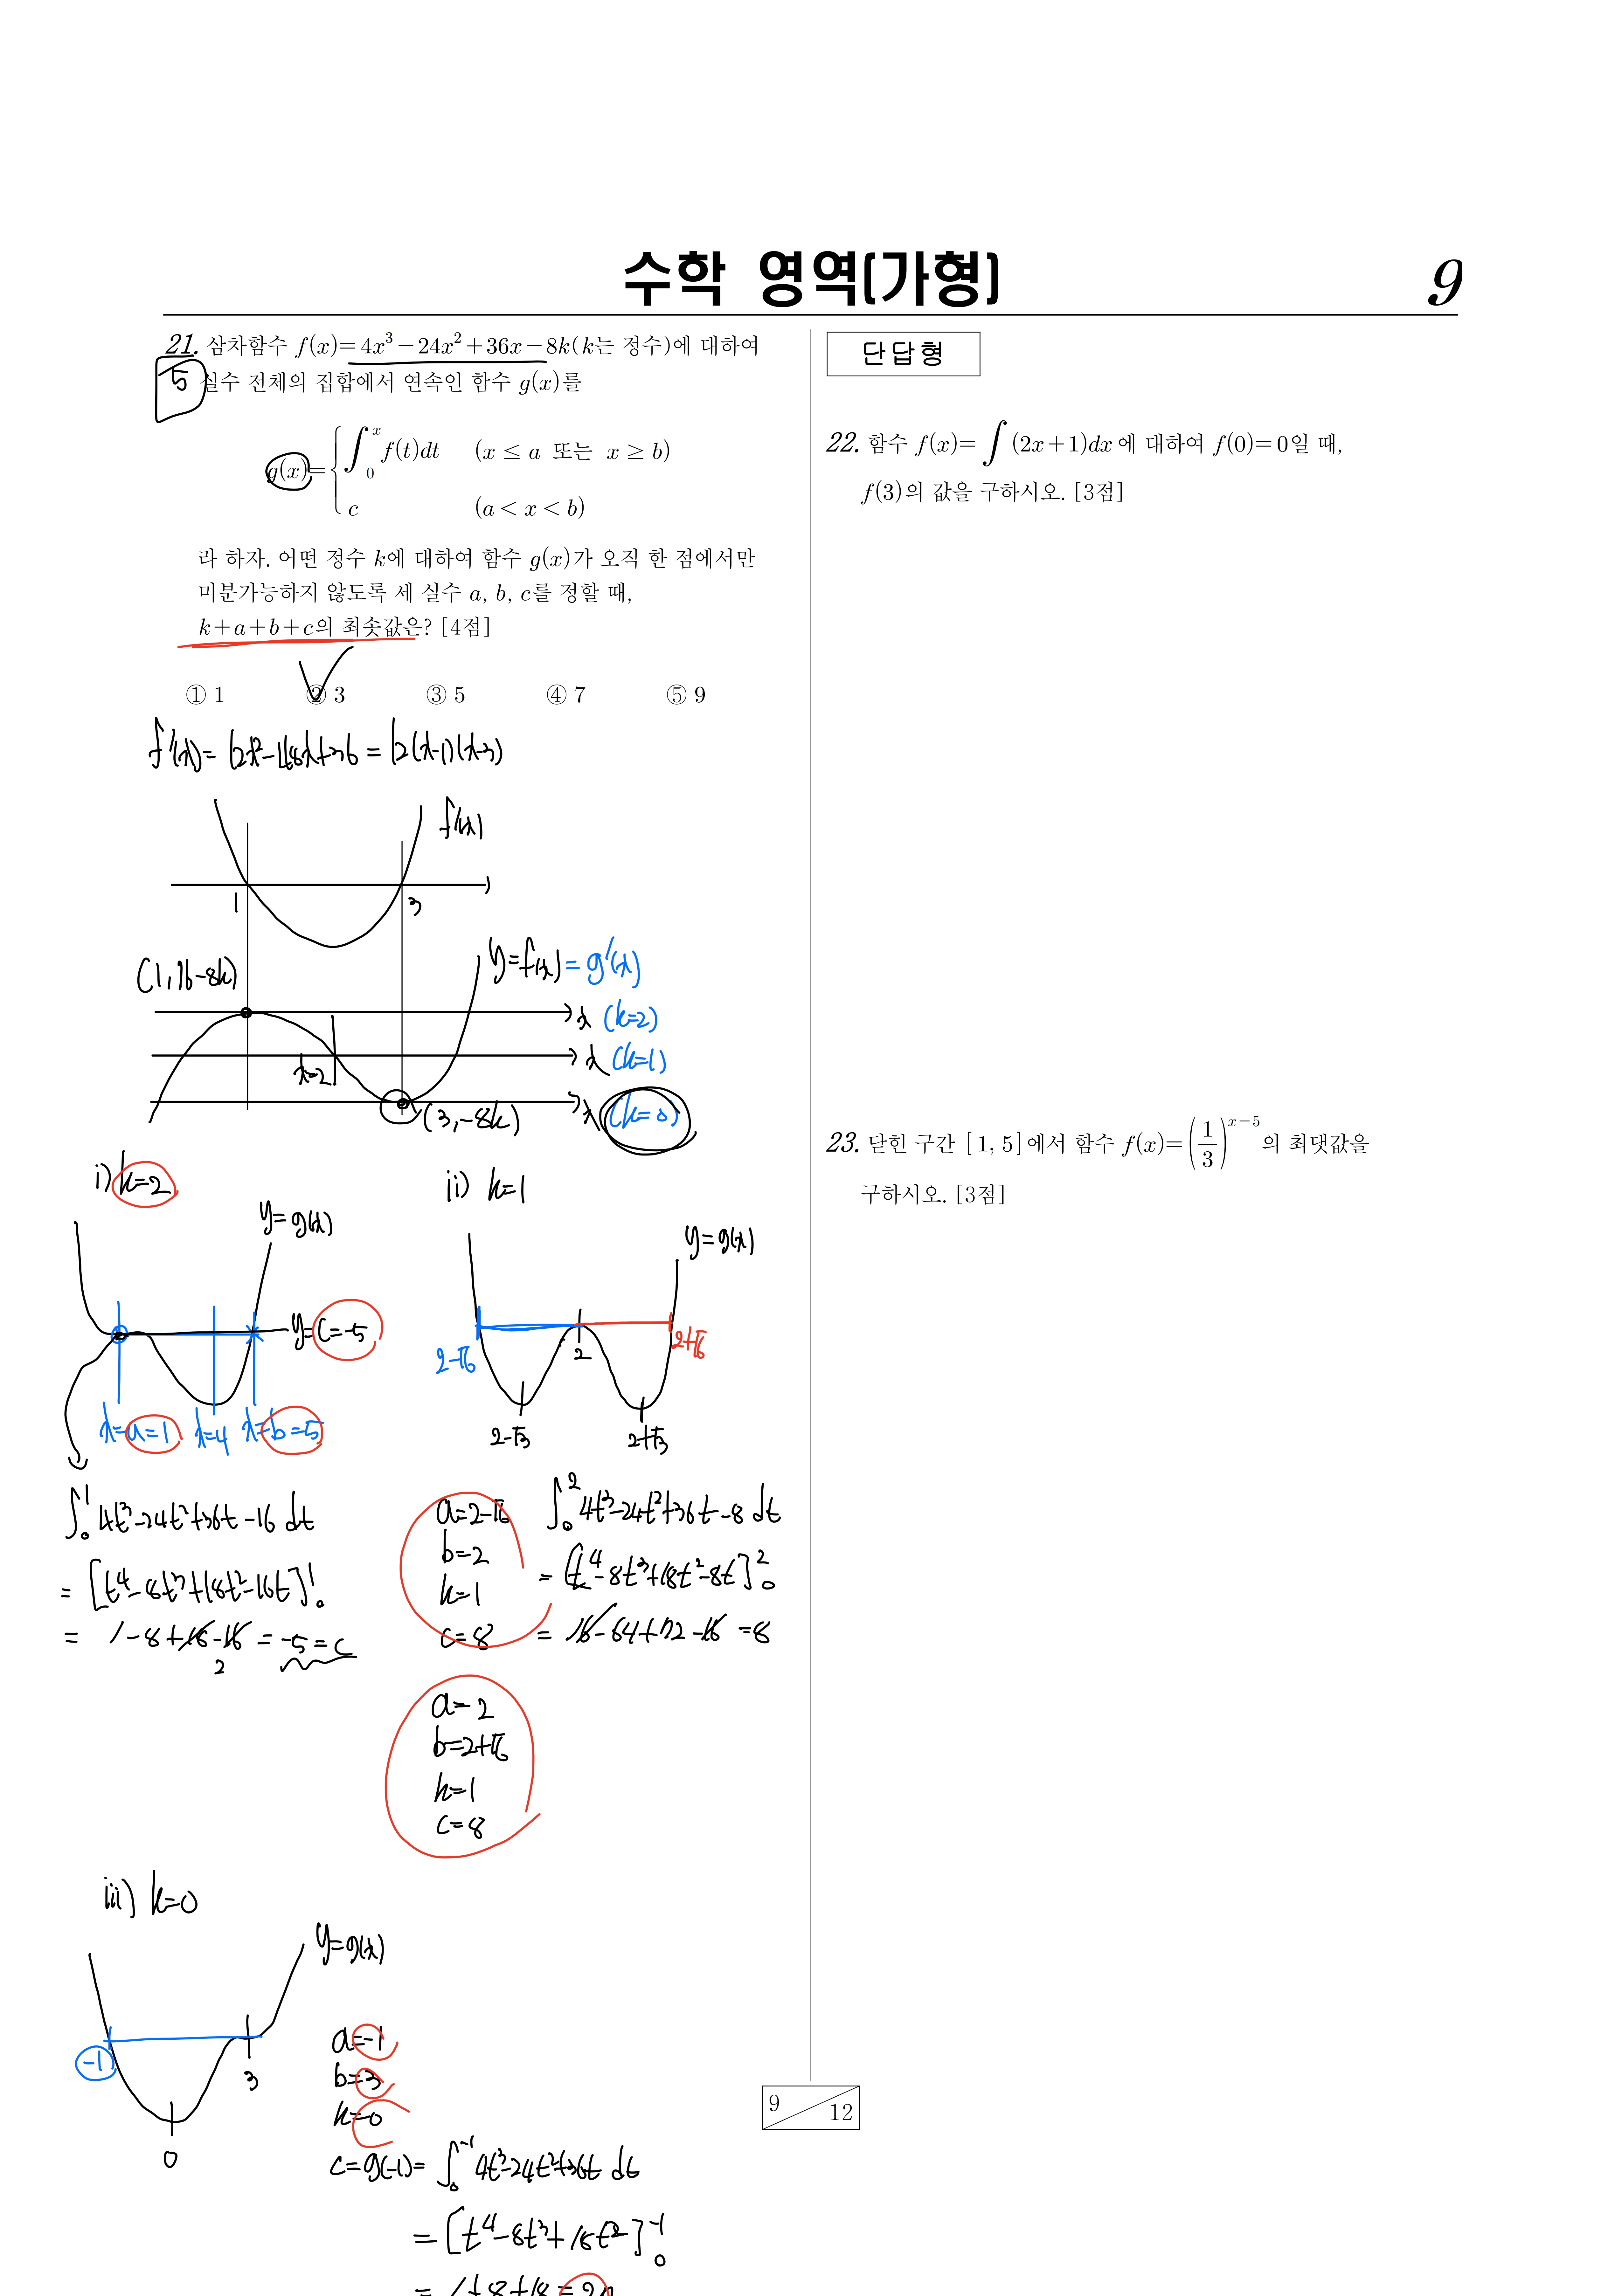 수학 영역(가형)
9
21. 삼차함수 f(x)=4x³−24x²+36x−8k(k는 정수)에 대하여
5
실수 전체의 집합에서 연속인 함수 g(x)를
g(x)= { ∫₀ˣ f(t)dt (x ≤ a 또는 x ≥ b)
c (a < x < b)
라 하자. 어떤 정수 k에 대하여 함수 g(x)가 오직 한 점에서만
미분가능하지 않도록 세 실수 a, b, c를 정할 때,
k+a+b+c의 최솟값은? [4점]
① 1 ② 3 ③ 5 ④ 7 ⑤ 9
f'(x)= 12x²−48x+36 = 12(x−1)(x−3)
f'(x)
1 3
(1, 16−8k)
y=f(x) = g'(x)
x (k=2)
x (k=1)
x=2
x (k=0)
(3, −8k)
i) k=2
y=g(x)
y=c=−5
x=a=1 x=4 x=b=5
∫₀¹ 4t³−24t²+36t−16 dt
= [t⁴−8t³+18t²−16t]₀¹
= 1−8+18−16 = −5 = c
2
ii) k=1
y=g(x)
2−√6 2 2+√6
2−√3 2+√3
a=2−√6
b=2
k=1
c=8
∫₀² 4t³−24t²+36t−8 dt
= [t⁴−8t³+18t²−8t]₀²
= 16−64+72−16 =8
a=2
b=2+√6
k=1
c=8
iii) k=0
y=g(x)
−1 3
0
a=−1
b=3
k=0
c=g(−1)= ∫₀⁻¹ 4t³−24t²+36t dt
= [t⁴−8t³+18t²]₀⁻¹
= 1+8+18=
단답형
22. 함수 f(x)=∫(2x+1)dx에 대하여 f(0)=0일 때,
f(3)의 값을 구하시오. [3점]
23. 닫힌 구간 [1, 5]에서 함수 f(x)=(1/3)ˣ⁻⁵의 최댓값을
구하시오. [3점]
9 12